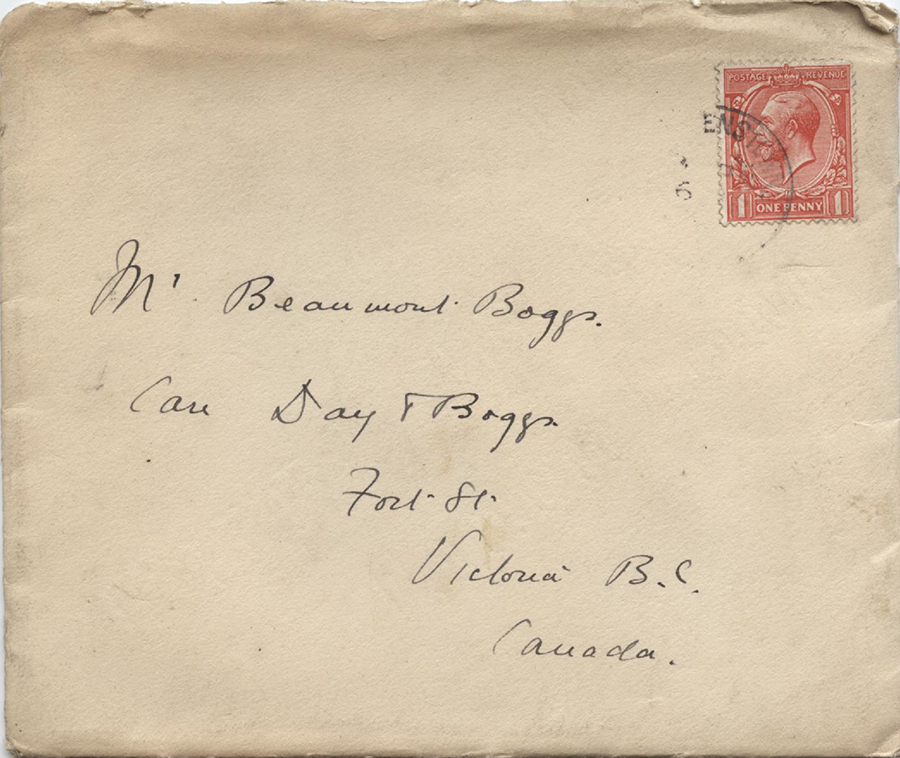 POSTAGE REVENUE
1 ONE PENNY 1
Mr. Beaumont Boggs.
Care Day & Boggs.
Fort St.
Victoria B.C.
Canada.